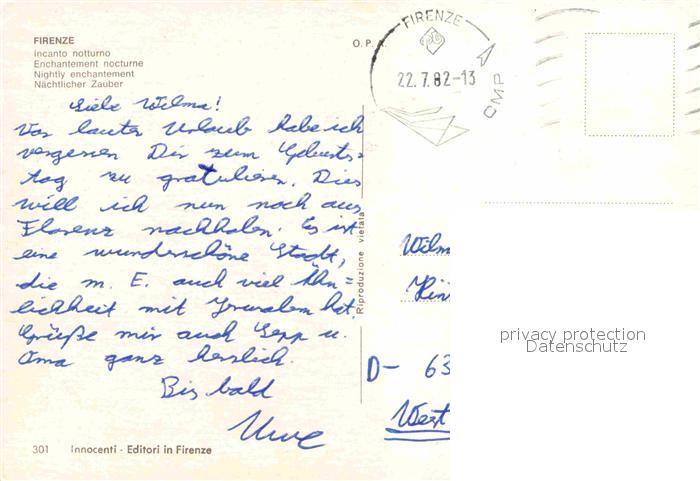 FIRENZE
Incanto notturno
Enchantement nocturne
Nightly enchantement
Nächtlicher Zauber
O. P. A.
FIRENZE
22.7.82-13
CMP
Liebe Wilma!
Vor lauter Urlaub habe ich
vergessen Dir zum Geburts=
tag zu gratulieren. Dies
will ich nun noch aus
Florenz nachholen. Es ist
eine wunderschöne Stadt,
die m. E. auch viel Ähn=
lichkeit mit Jerusalem hat.
Grüße mir auch Sepp u.
Oma ganz herzlich.
Bis bald
Uwe
Riproduzione vietata
Wilm
D- 63
privacy protection
Datenschutz
301 Innocenti - Editori in Firenze